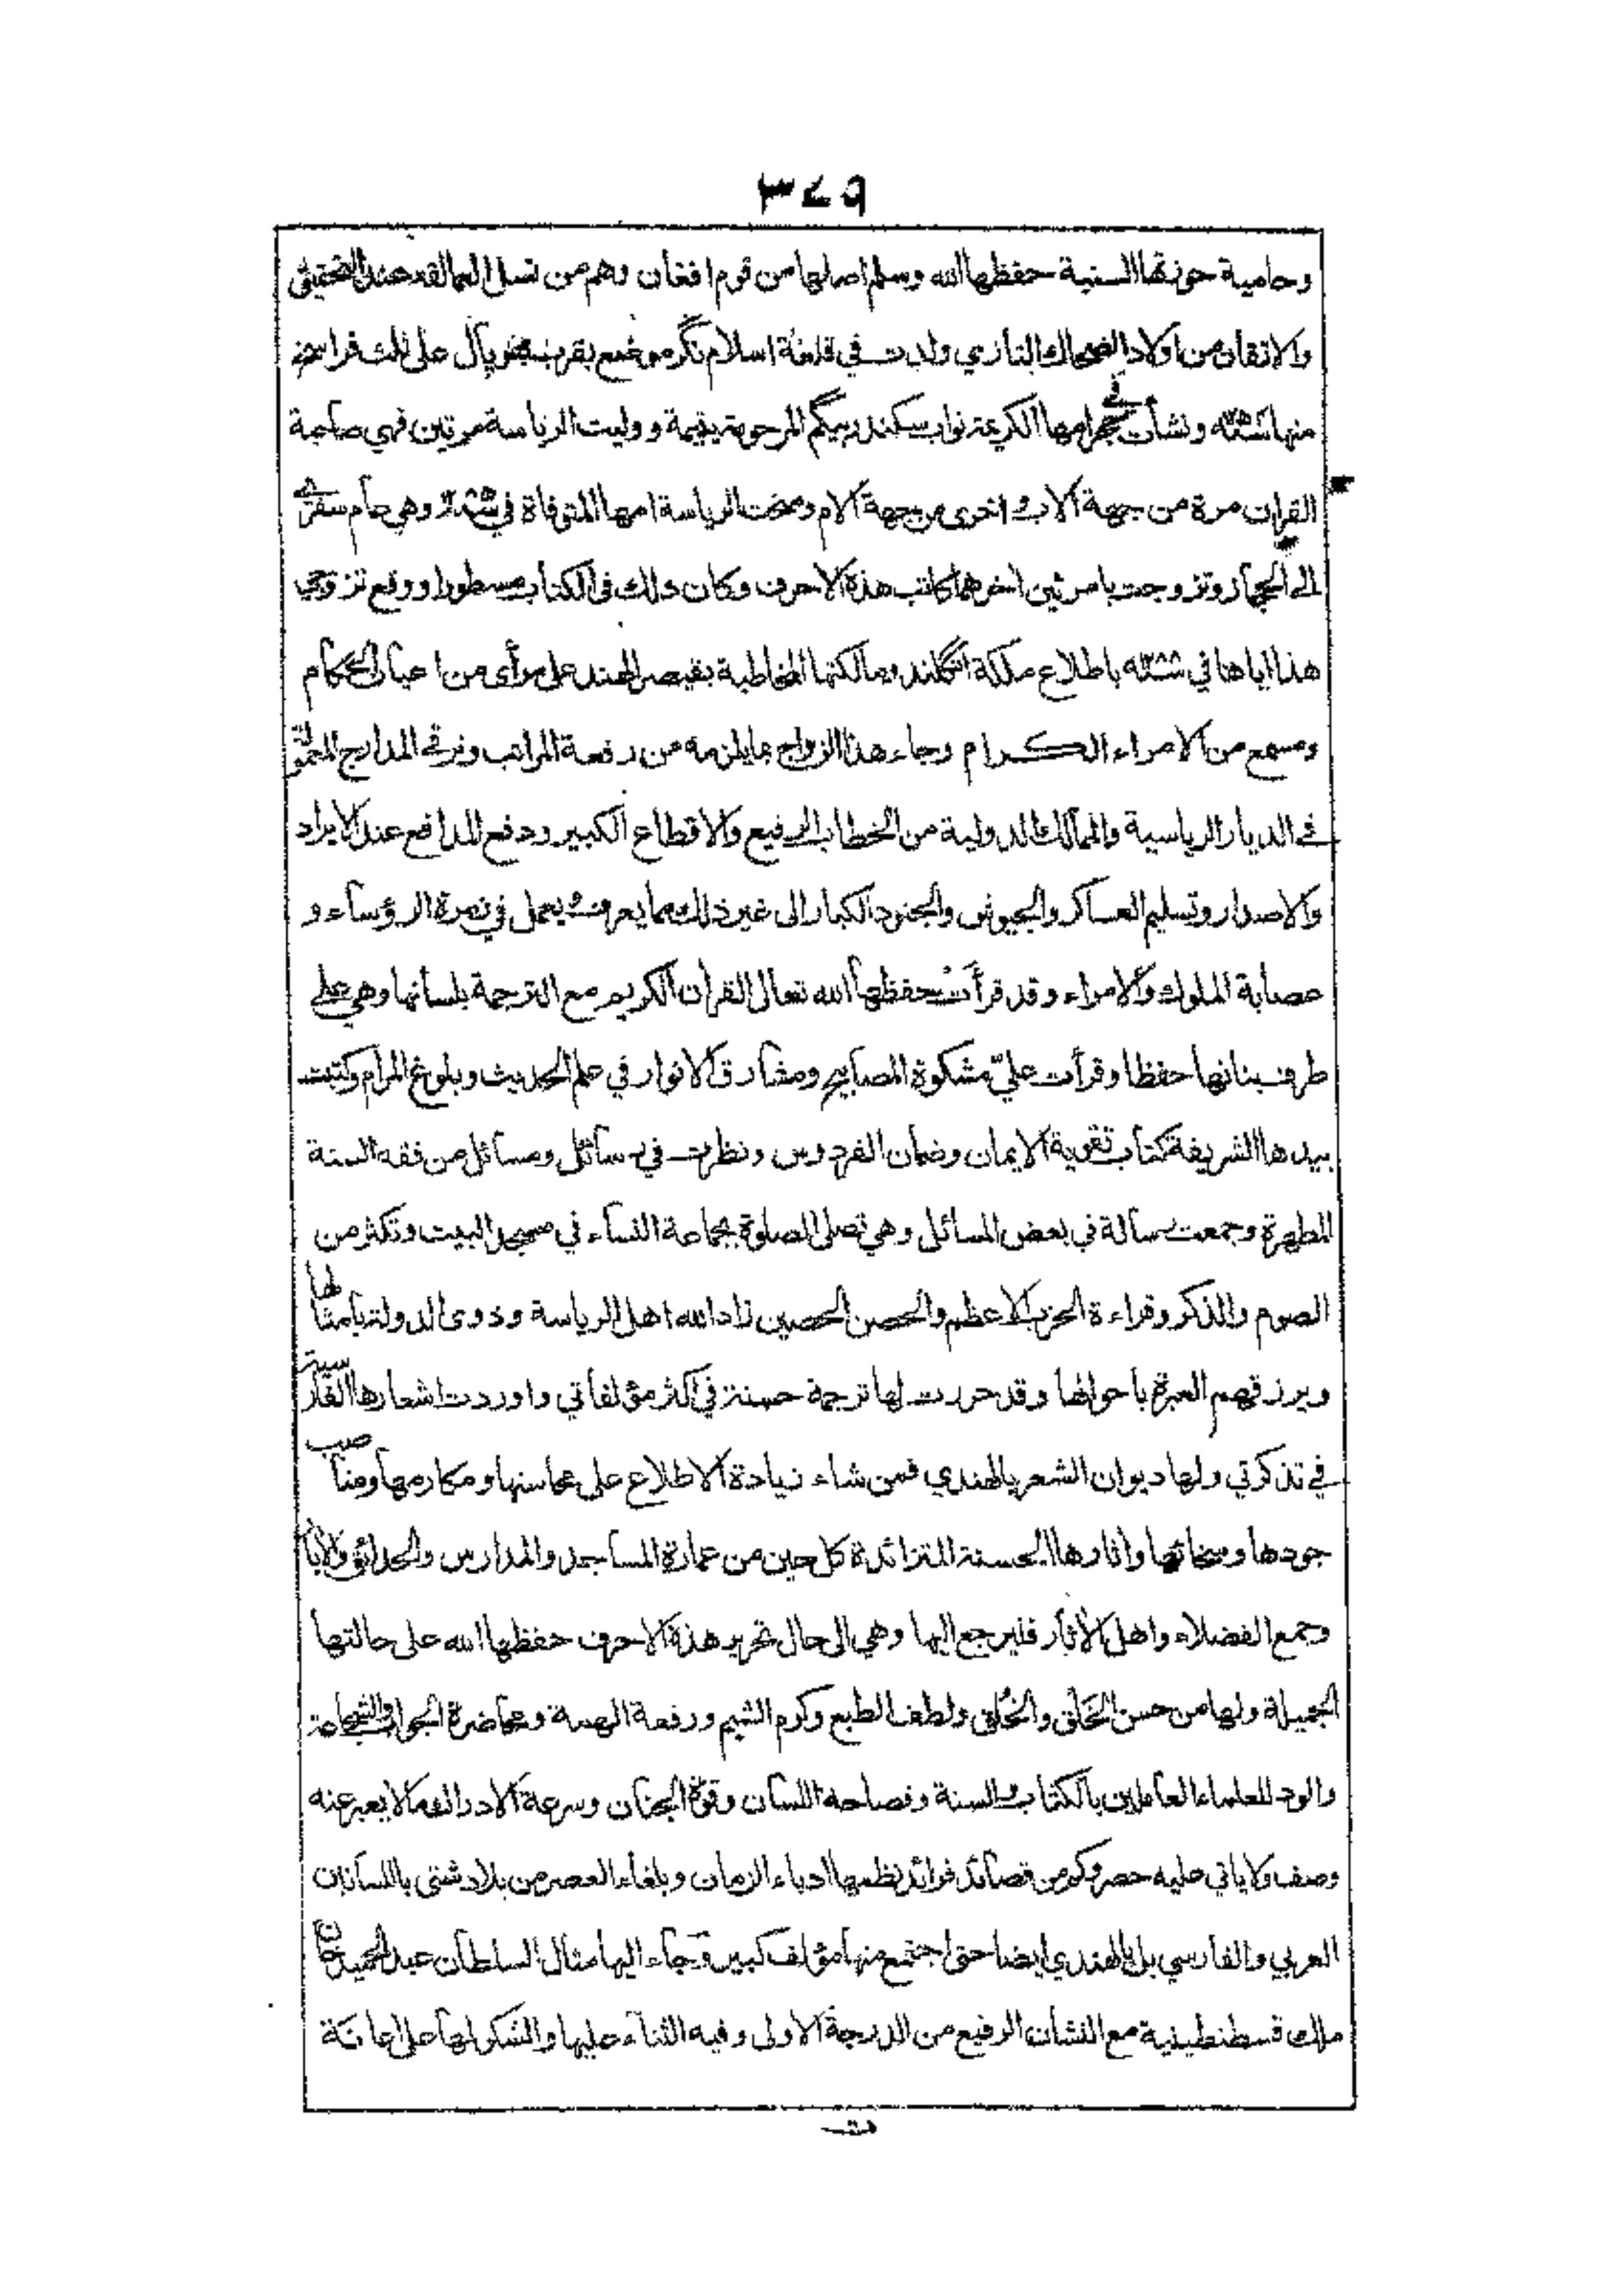 ٣٤٩
وحامية حوزتها السنية حفظها الله وسلم اصلها من قوم افغان وهم من نسل العمالقة عند التحقيق
والاتقان من اولاد الضحاك التازي ولدت في قلعة اسلام نگر موضع بقرب بهوپال على ثلث فراسخ
منها ونشأت في حجر امها الكريمة نواب سكندر بيگم المرحومة يتيمة ووليت الرياسة مرتين فهي صاحبة
القران مرة من جهة الاب واخرى من جهة الام ومضت الرياسة امها المتوفاة في وهي عام سفري
الى الحجاز وتزوجت بامرئين اخرهما كاتب هذه الاحرف وكان ذلك في الكتاب مسطورا ووقع تزوجي
هذا اياها في باطلاع ملكة انگلند ومالكتها المخاطبة بقيصر الهند على مرأى من اعيان الحكام
ومسمع من الامراء الكرام وجاء هذا الزواج بما يلزمه من رفعة المراتب وترقي المدارج
في الديار الرياسية والممالك الدولية من الخطاب الرفيع والاقطاع الكبير ودفع المدافع عند الايراد
والاصدار وتسليم العساكر والجيوش والجنود الكبار الى غير ذلك مما يعرف ويعمل في زمرة الرؤساء و
عصابة الملوك والامراء وقد قرأت حفظها الله تعالى القران الكريم مع الترجمة بلسانها وهي على
طرف بنانها حفظا وقرأت عليّ مشكوة المصابيح ومشارق الانوار في علم الحديث وبلوغ المرام وكتبت
بيدها الشريفة كتاب تقوية الايمان وضمان الفردوس ونظرت في رسائل ومسائل من فقه السنة
المطهرة وجمعت رسالة في بعض المسائل وهي تصلي الصلوة بجماعة النساء في مسجد البيت وتكثر من
الصوم والذكر وقراءة الحزب الاعظم والحصن الحصين زاد الله اهل الرياسة وذوى الدولة بامثالها
ويرزقهم العبرة باحوالها وقد حررت لها ترجمة حسنة في اكثر مؤلفاتي واوردت اشعارها الفارسية
في تذكرتي ولها ديوان الشعر بالهندي فمن شاء زيادة الاطلاع على محاسنها ومكارمها ومناصب
جودها وسخائها واثارها الحسنة المتزائدة كل حين من عمارة المساجد والمدارس والحدائق والابار
وجمع الفضلاء واهل الأثار فليرجع اليها وهي الى حال تحرير هذه الاحرف حفظها الله على حالتها
الجميلة ولها من حسن الخَلق والخُلق ولطف الطبع وكرم الشيم ورفعة الهمة ومحاضرة الجواب والشجاعة
والود للعلماء العاملين بالكتاب والسنة وفصاحة اللسان وقوة الجنان وسرعة الادراك ما لا يعبر عنه
وصف ولا ياتي عليه حصر وكم من قصائد فرائد نظمها ادباء الزمان وبلغاء العصر من بلاد شتى باللسانين
العربي والفارسي بل بالهندي ايضا حتى اجتمع منها مؤلف كبير وجاء اليها مثال السلطان عبد الحميد خان
ملك قسطنطينية مع النشان الرفيع من الدرجة الاولى وفيه الثناء عليها والشكر لها على اعانة